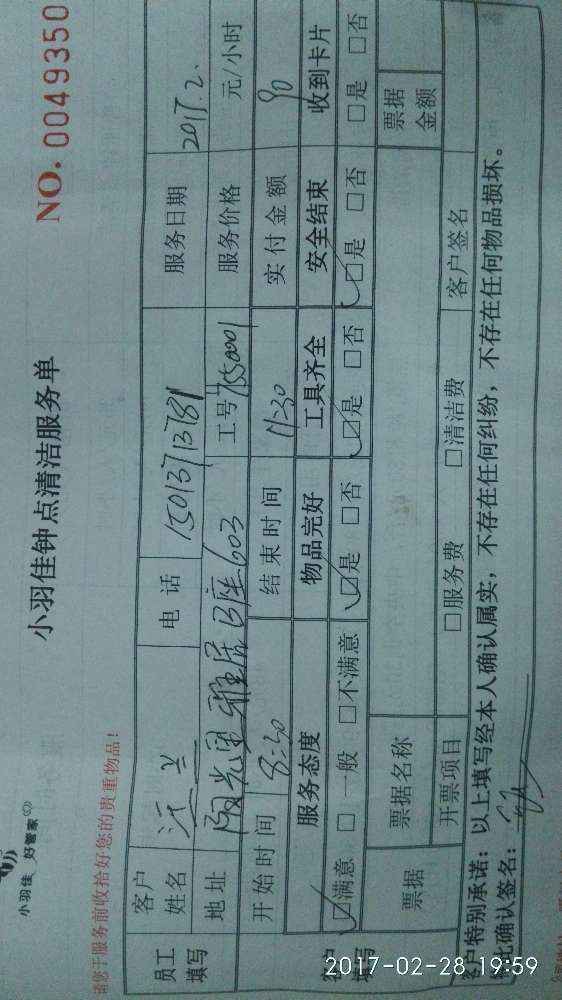 小羽佳 好管家
小羽佳钟点清洁服务单
NO. 0049350
请您于服务前收拾好您的贵重物品!
员工填写
客户姓名 汪兰 电话 15013713781 服务日期 2017.2.
地址 阳光里雅居B座603 工号 7550001 服务价格 元/小时
开始时间 8:30 结束时间 11:30 实付金额 90
服务态度 物品完好 工具齐全 安全结束 收到卡片
☑满意 □一般 □不满意 ☑是 □否 ☑是 □否 ☑是 □否 □是 □否
票据 票据名称 票据金额
开票项目 □服务费 □清洁费 客户签名
客户特别承诺:以上填写经本人确认属实,不存在任何纠纷,不存在任何物品损坏。
此确认签名:
2017-02-28 19:59